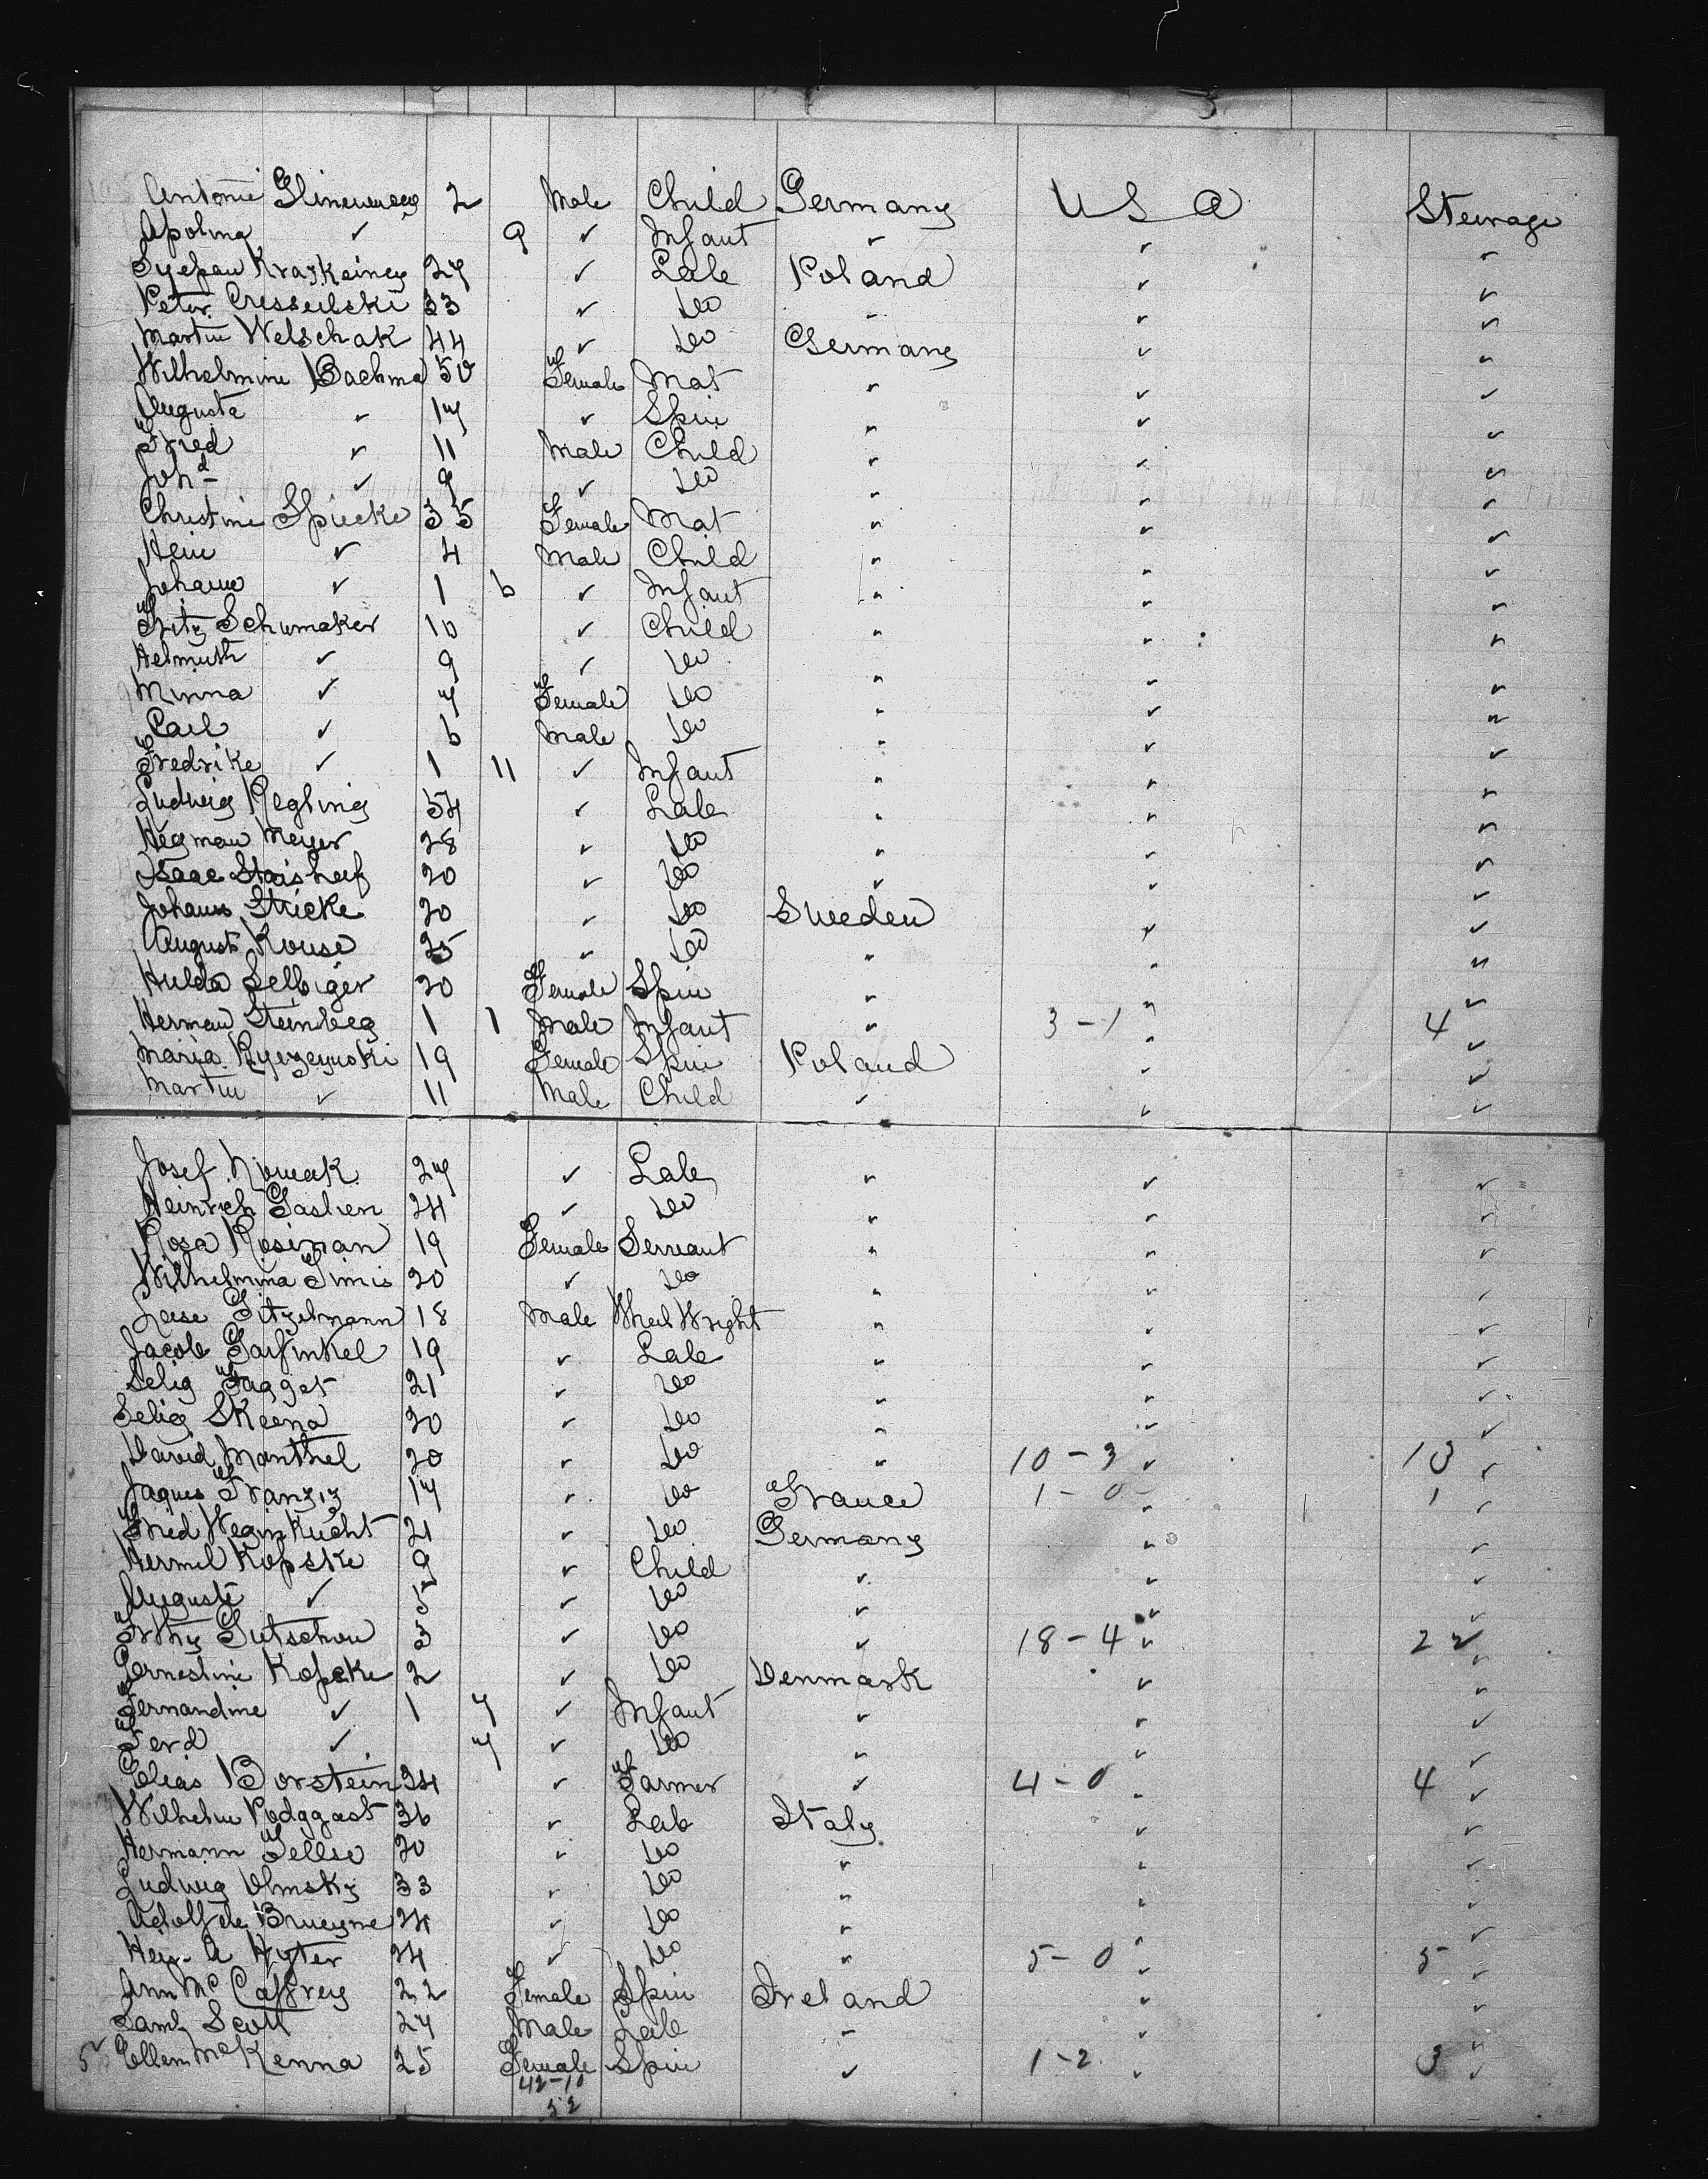 Antonie 2 Male Child Germany U S A Steerage
Apolina ✓ 9 ✓ Infant " " "
27 ✓ Lab Poland " "
Peter 33 ✓ Do " " "
Martin Welschak 44 ✓ Do Germany " "
Wilhelmine Bachma 50 Female Mat " " "
Augusta " 17 ✓ Spin " " "
Fred " 11 Male Child " " "
Johd ✓ 9 ✓ Do " " "
Christine Spiecke 35 Female Mat " " "
Hein ✓ 4 Male Child " " "
Johann ✓ 1 6 ✓ Infant " " "
Fritz Schumaker 10 ✓ Child " " "
Helmuth ✓ 9 ✓ Do " " "
Minna ✓ 7 Female Do " " "
Carl ✓ 6 Male Do " " "
Fredrike ✓ 1 11 ✓ Infant " " "
Ludwig Regling 54 ✓ Lab " " "
Hegman Meyer 28 ✓ Do " " "
Isaac 20 ✓ Do " " "
Johann Stricke 20 ✓ Do Sweden " "
August Kouse 25 ✓ Do " " "
Hulda Selbiger 20 Female Spin " " "
Herman Steinberg 1 1 Male Infant " 3-1 " 4 "
Maria 19 Female Spin Poland " "
Martin ✓ 11 Male Child " " "
Josef Nowak 27 ✓ Lab " " "
Heinrich Gashen 24 ✓ Do " " "
Rosa Rosiman 19 Female Servant " " "
Wilhelmina Simis 20 ✓ Do " " "
Gitzelmann 18 Male Wheel Wright " " "
Jacob Garfinkel 19 ✓ Lab " " "
Selig Fagget 21 ✓ Do " " "
Selig Skeena 20 ✓ Do " " "
David Manthel 20 ✓ Do " 10-3 " 13 "
Jaques 17 ✓ Do France 1-0 " 1 "
Fried 21 ✓ Do Germany " "
Kopske 9 ✓ Child " " "
Auguste ✓ 5 ✓ Do " " "
Gutschow 3 ✓ Do " 18-4 " 22 "
Ernestine Kopcke 2 ✓ Do Denmark " "
Fernandine ✓ 1 7 ✓ Infant " " "
Ferd ✓ 7 ✓ Do " " "
Elias Borstein 24 ✓ Farmer " 4-0 " 4 "
Wilhelm Podggast 36 ✓ Lab Italy " "
Hermann Fellse 20 ✓ Do " " "
Ludwig Olmsky 33 ✓ Do " " "
Adolf de Brueyne 24 ✓ Do " " "
A Hyter 24 ✓ Do " 5-0 " 5 "
Ann McCaffrey 22 Female Spin Ireland " "
Saml Scott 27 Male Lab " " "
52 Ellen McKenna 25 Female Spin " 1-2 " 3 "
42-10
52